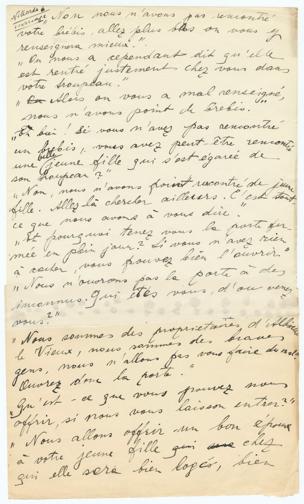 Non nous n'avons pas rencontré
votre brébis, allez plus bas on vous y
renseignera mieux."
"On nous a cependant dit qu'elle
est rentré justement chez vous dans
votre troupeau."
"Alors on vous a mal renseigné,
nous n'avons point de brebis."
"Et oui! Si vous n'avez pas rencontré
un brebis, vous avez peut être rencontré
une belle jeune fille qui s'est égarée de
son troupeau?"
"Non, nous n'avons point racontré de jeune
fille. Allez la chercher ailleurs. C'est tout
ce que nous avons à vous dire.
"Et pourquoi tenez vous la porte fer-
mée en plein jour? Si vous n'avez rien
à cacher, vous pouvez bien l'ouvrir."
"Nous n'ouvrons pas la porte à des
inconnus. Qui êtes vous, d'où venez
vous?"
"Nous sommes des proprietaires, d'
le Vieux, nous sommes des braves
gens, nous n'allons pas vous faire du mal.
Ouvrez donc la porte."
"Qu'est-ce que vous pouvez nous
offrir, si nous vous laisson entrer?"
"Nous allons offrir un bon époux
à votre jeune fille chez
qui elle sera bien logés, bien